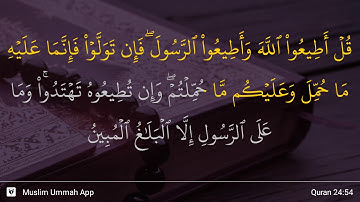 قُلْ أَطِيعُوا۟ ٱللَّهَ وَأَطِيعُوا۟ ٱلرَّسُولَ ۖ فَإِن تَوَلَّوْا۟ فَإِنَّمَا عَلَيْهِ
مَا حُمِّلَ وَعَلَيْكُم مَّا حُمِّلْتُمْ ۖ وَإِن تُطِيعُوهُ تَهْتَدُوا۟ ۚ وَمَا
عَلَى ٱلرَّسُولِ إِلَّا ٱلْبَلَـٰغُ ٱلْمُبِينُ
Muslim Ummah App
Quran 24:54